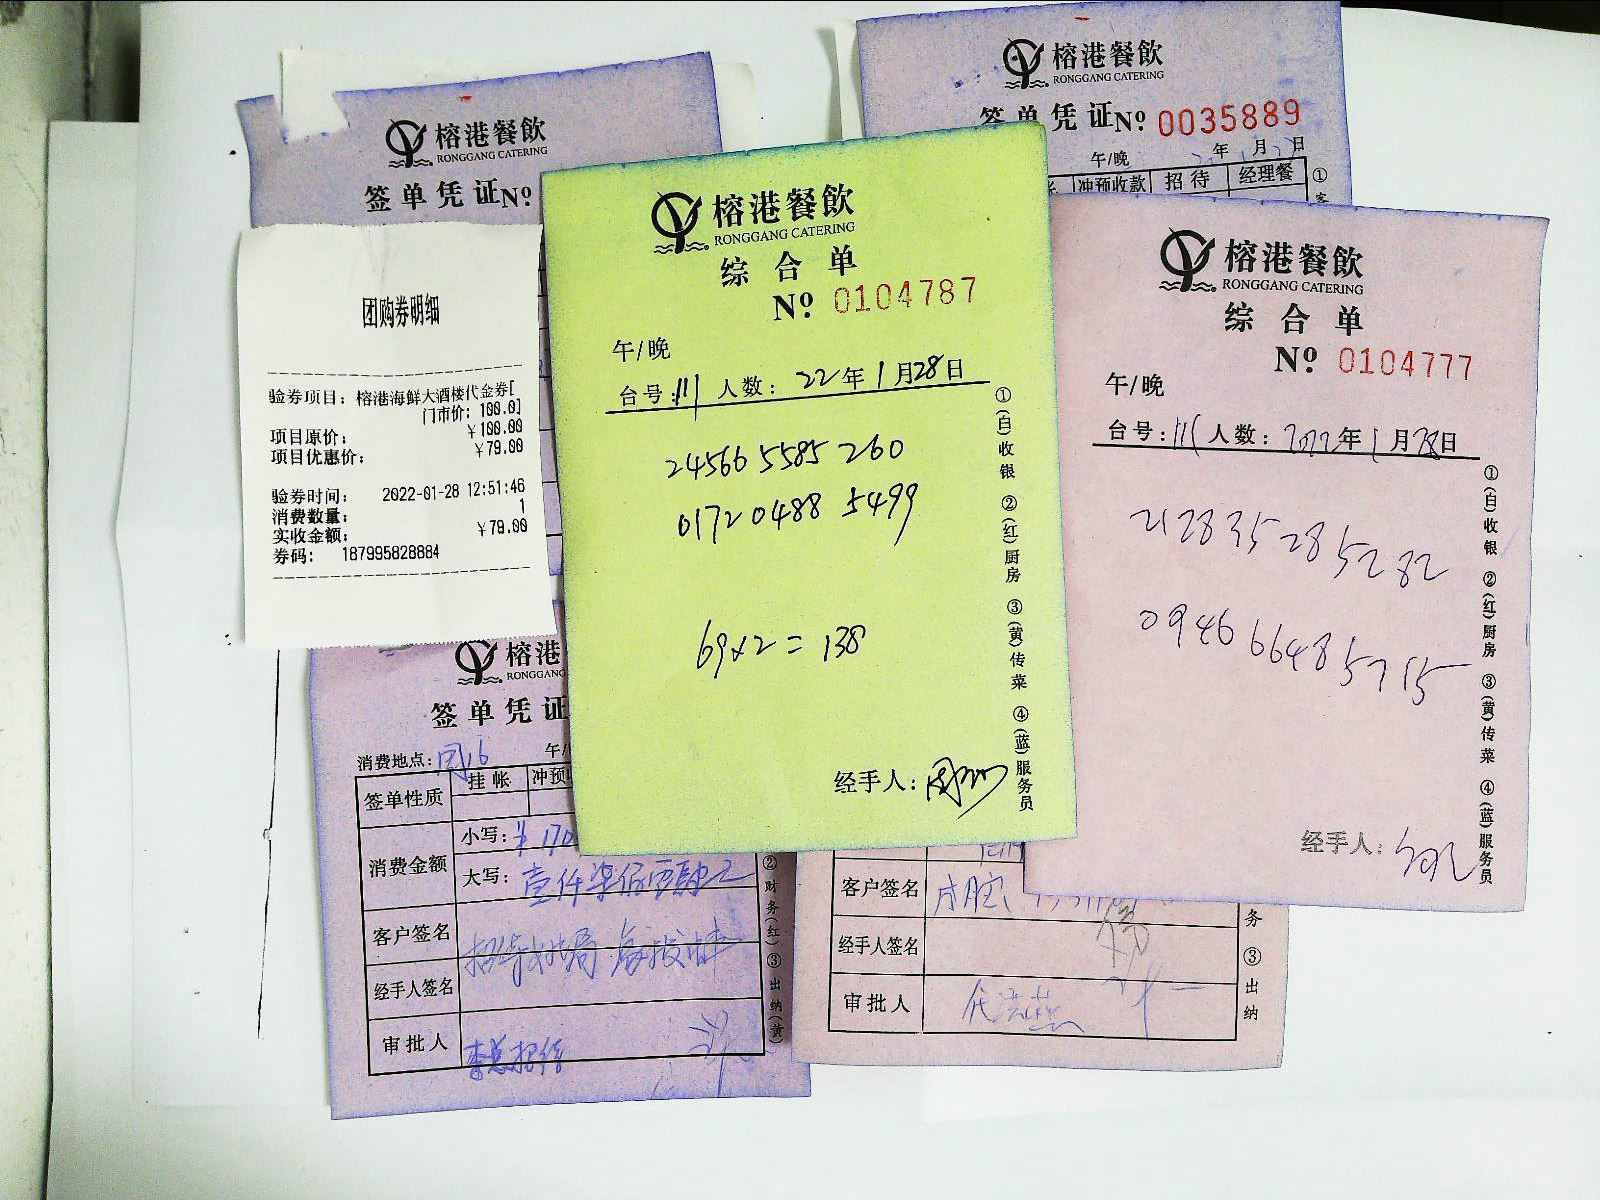 榕港餐飲
RONGGANG CATERING
签单凭证No
团购券明细
验券项目: 榕港海鲜大酒楼代金券[
门市价: 100.0]
项目原价: ￥100.00
项目优惠价: ￥79.00
验券时间: 2022-01-28 12:51:46
消费数量: 1
实收金额: ￥79.00
券码: 187995828884
榕港
RONGGANG
签单凭证
消费地点: 午/
签单性质 挂帐 冲预
消费金额 小写: ¥170
大写:
客户签名
经手人签名
审批人
②财务(红) ③出纳(黄)
榕港餐飲
RONGGANG CATERING
综合单
No 0104787
午/晚
台号: 111 人数: 22年1月28日
24566 5585 260
0172 0488 5499
69x2=138
经手人:
①(白)收银 ②(红)厨房 ③(黄)传菜 ④(蓝)服务员
榕港餐飲
RONGGANG CATERING
签单凭证No 0035889
午/晚 年 月 日
冲预收款 招待 经理餐
①
榕港餐飲
RONGGANG CATERING
综合单
No 0104777
午/晚
台号: 111 人数: 2022年1月28日
212835285282
0946 6648 5715
经手人:
①(白)收银 ②(红)厨房 ③(黄)传菜 ④(蓝)服务员
客户签名
经手人签名
审批人
务 ③出纳